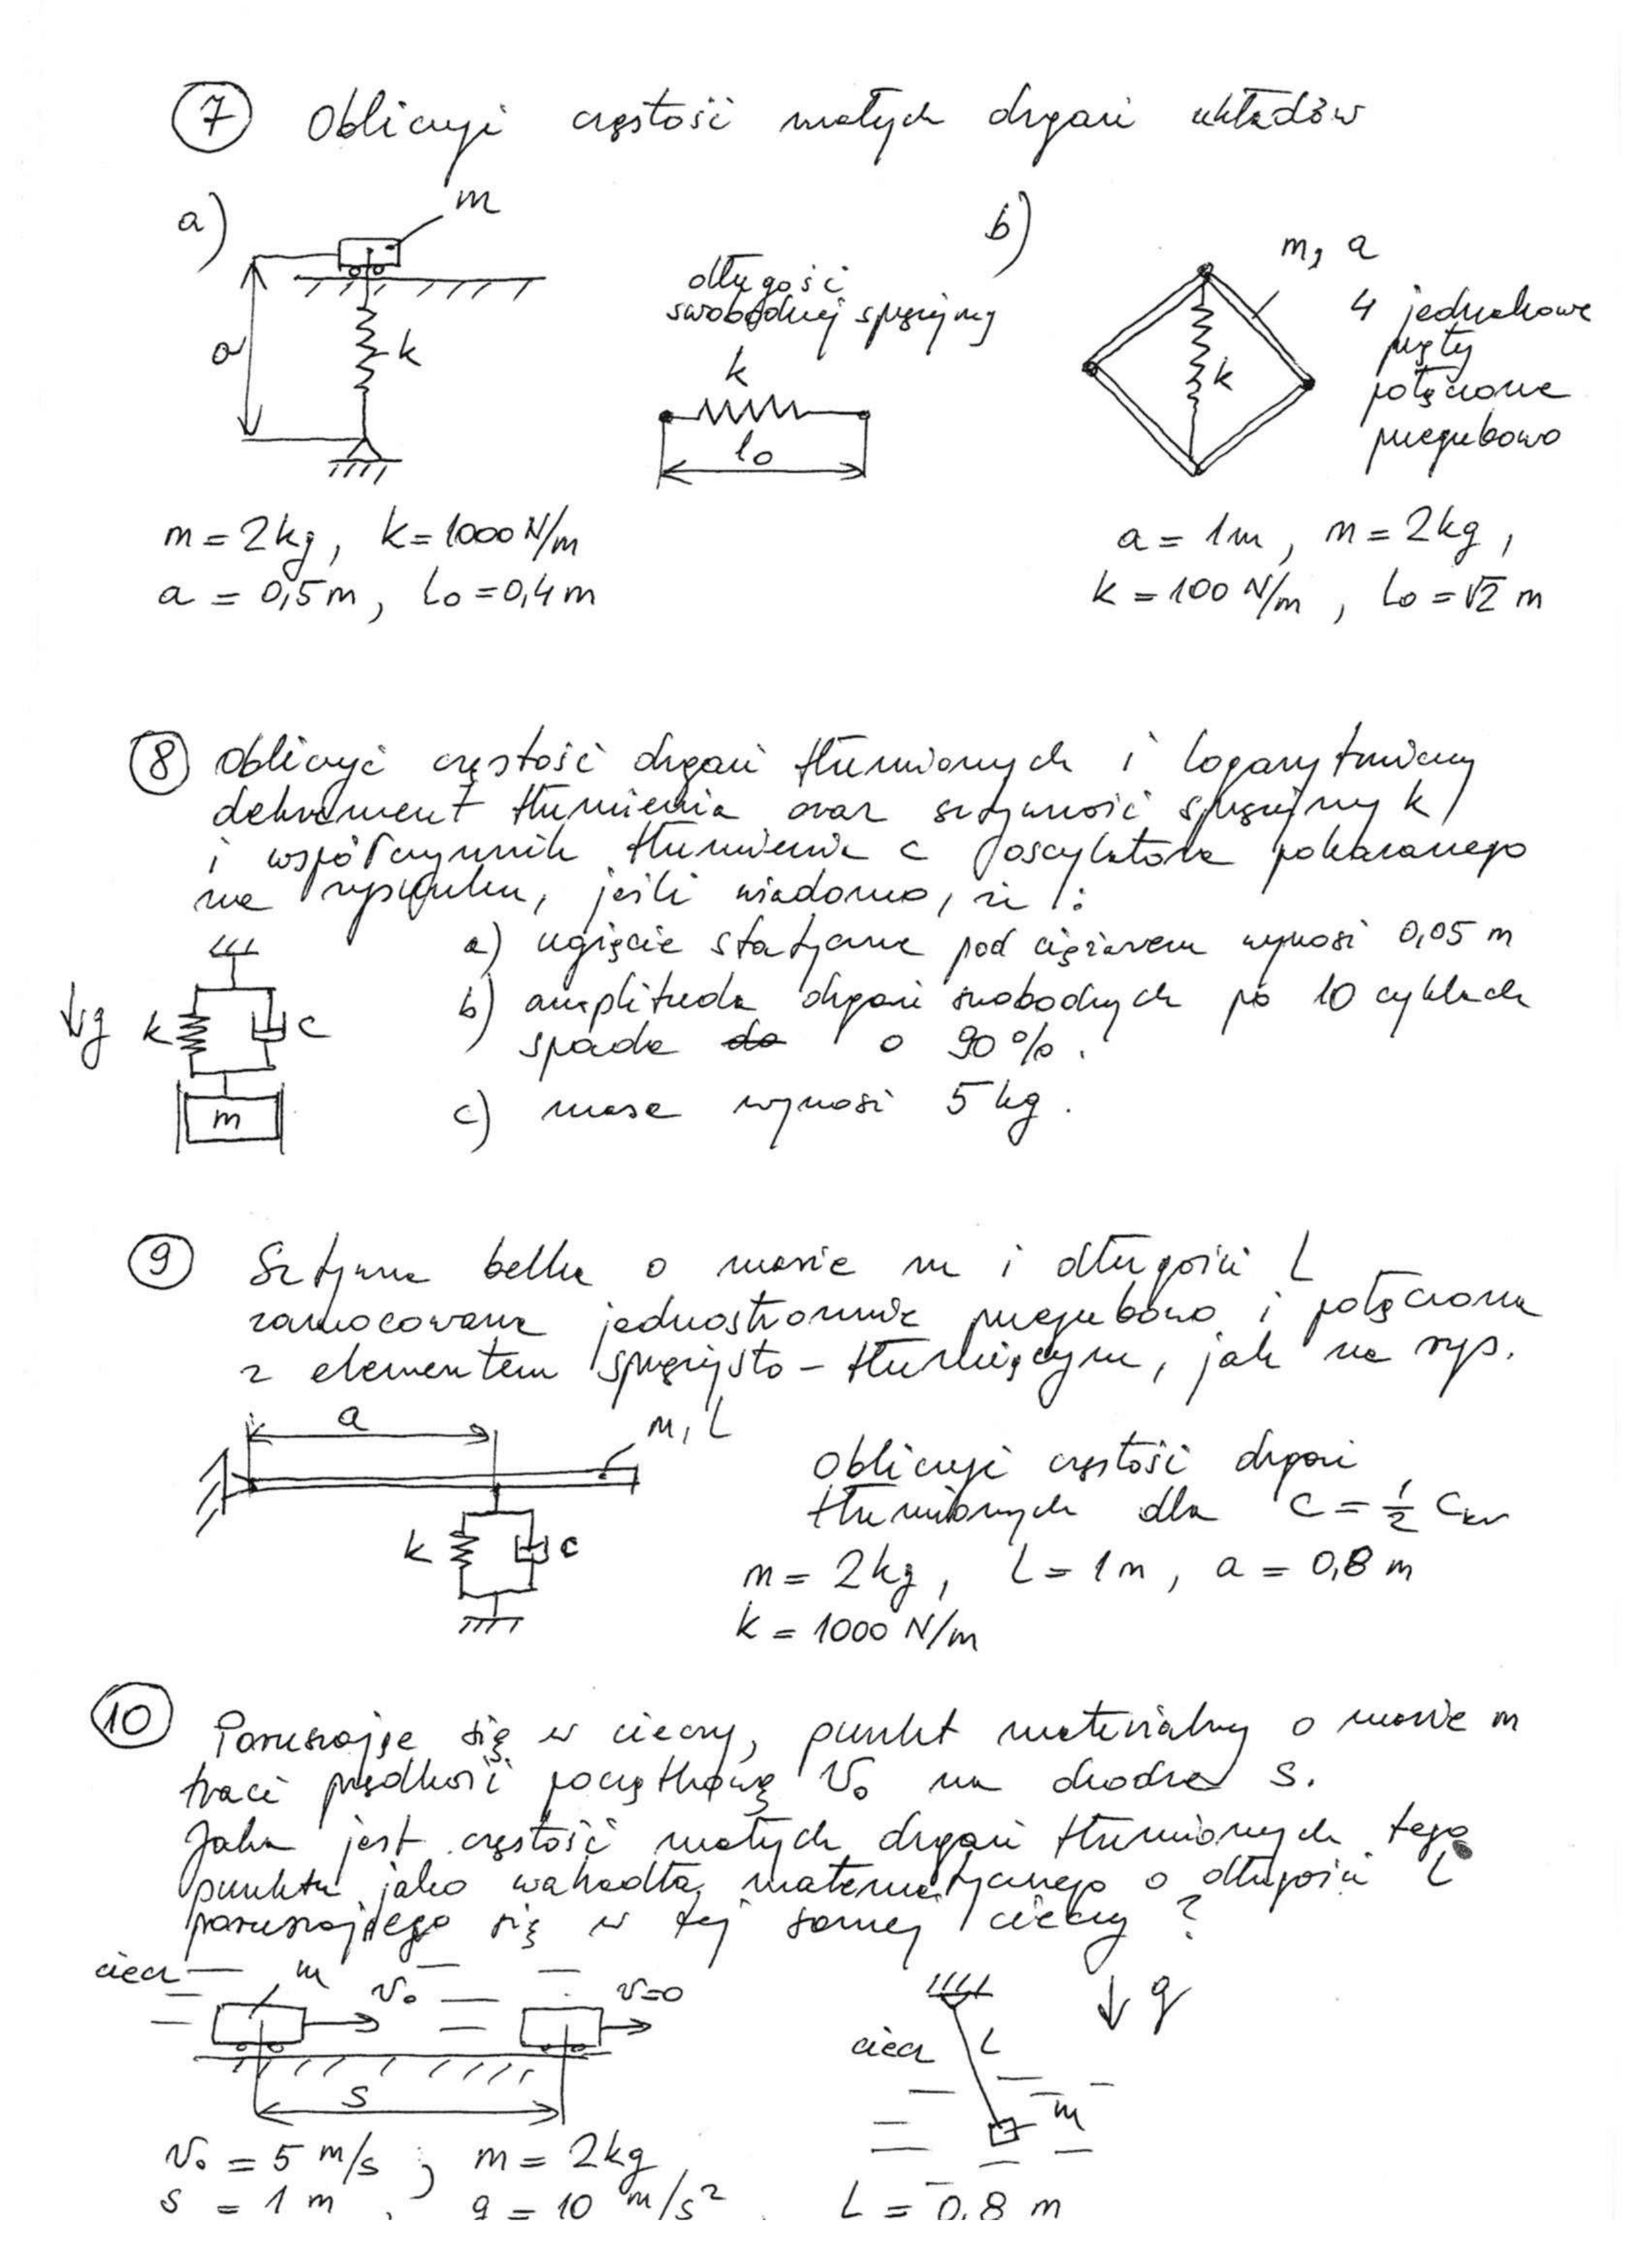 7 Obliczyć częstość małych drgań układów
a)
m
a
k
długość
swobodnej sprężyny
k
l₀
b)
m, a
4 jednakowe
pręty
połączone
przegubowo
k
m = 2 kg, k = 1000 N/m
a = 0,5 m, l₀ = 0,4 m
a = 1 m, m = 2 kg,
k = 100 N/m, l₀ = √2 m
8 Obliczyć częstość drgań tłumionych i logarytmiczny
dekrement tłumienia oraz sztywność sprężyny k
i współczynnik tłumienia c oscylatora pokazanego
na rysunku, jeśli wiadomo, że:
a) ugięcie statyczne pod ciężarem wynosi 0,05 m
b) amplituda drgań swobodnych po 10 cyklach
spada do o 90%.
c) masa wynosi 5 kg.
g k c
m
9 Sztywna belka o masie m i długości L
zamocowana jednostronnie przegubowo i połączona
z elementem sprężysto-tłumiącym, jak na rys.
a
m, L
k c
Obliczyć częstość drgań
tłumionych dla c = 1/2 ckr
m = 2 kg, L = 1 m, a = 0,8 m
k = 1000 N/m
10 Poruszając się w cieczy, punkt materialny o masie m
traci prędkość początkową v₀ na drodze s.
Jaka jest częstość małych drgań tłumionych tego
punktu jako wahadła matematycznego o długości L
poruszającego się w tej samej cieczy?
ciecz m v₀ v=0
s
ciecz L g
m
v₀ = 5 m/s ; m = 2 kg
s = 1 m , g = 10 m/s² , L = 0,8 m